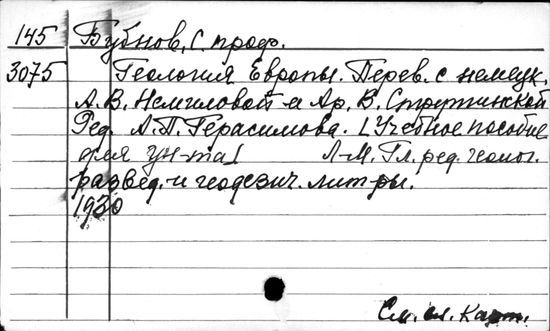 145 Бубнов, С. проф.
3075 Геология Европы. Перев. с немецк.
А. В. Немиловой и Ар. В. Струтинской
Ред. А. П. Герасимова. [Учебное пособие
для ун-та] Л-М. Гл. ред. геолог.
развед. и геодезич. лит-ры.
1930
См. сл. карт.